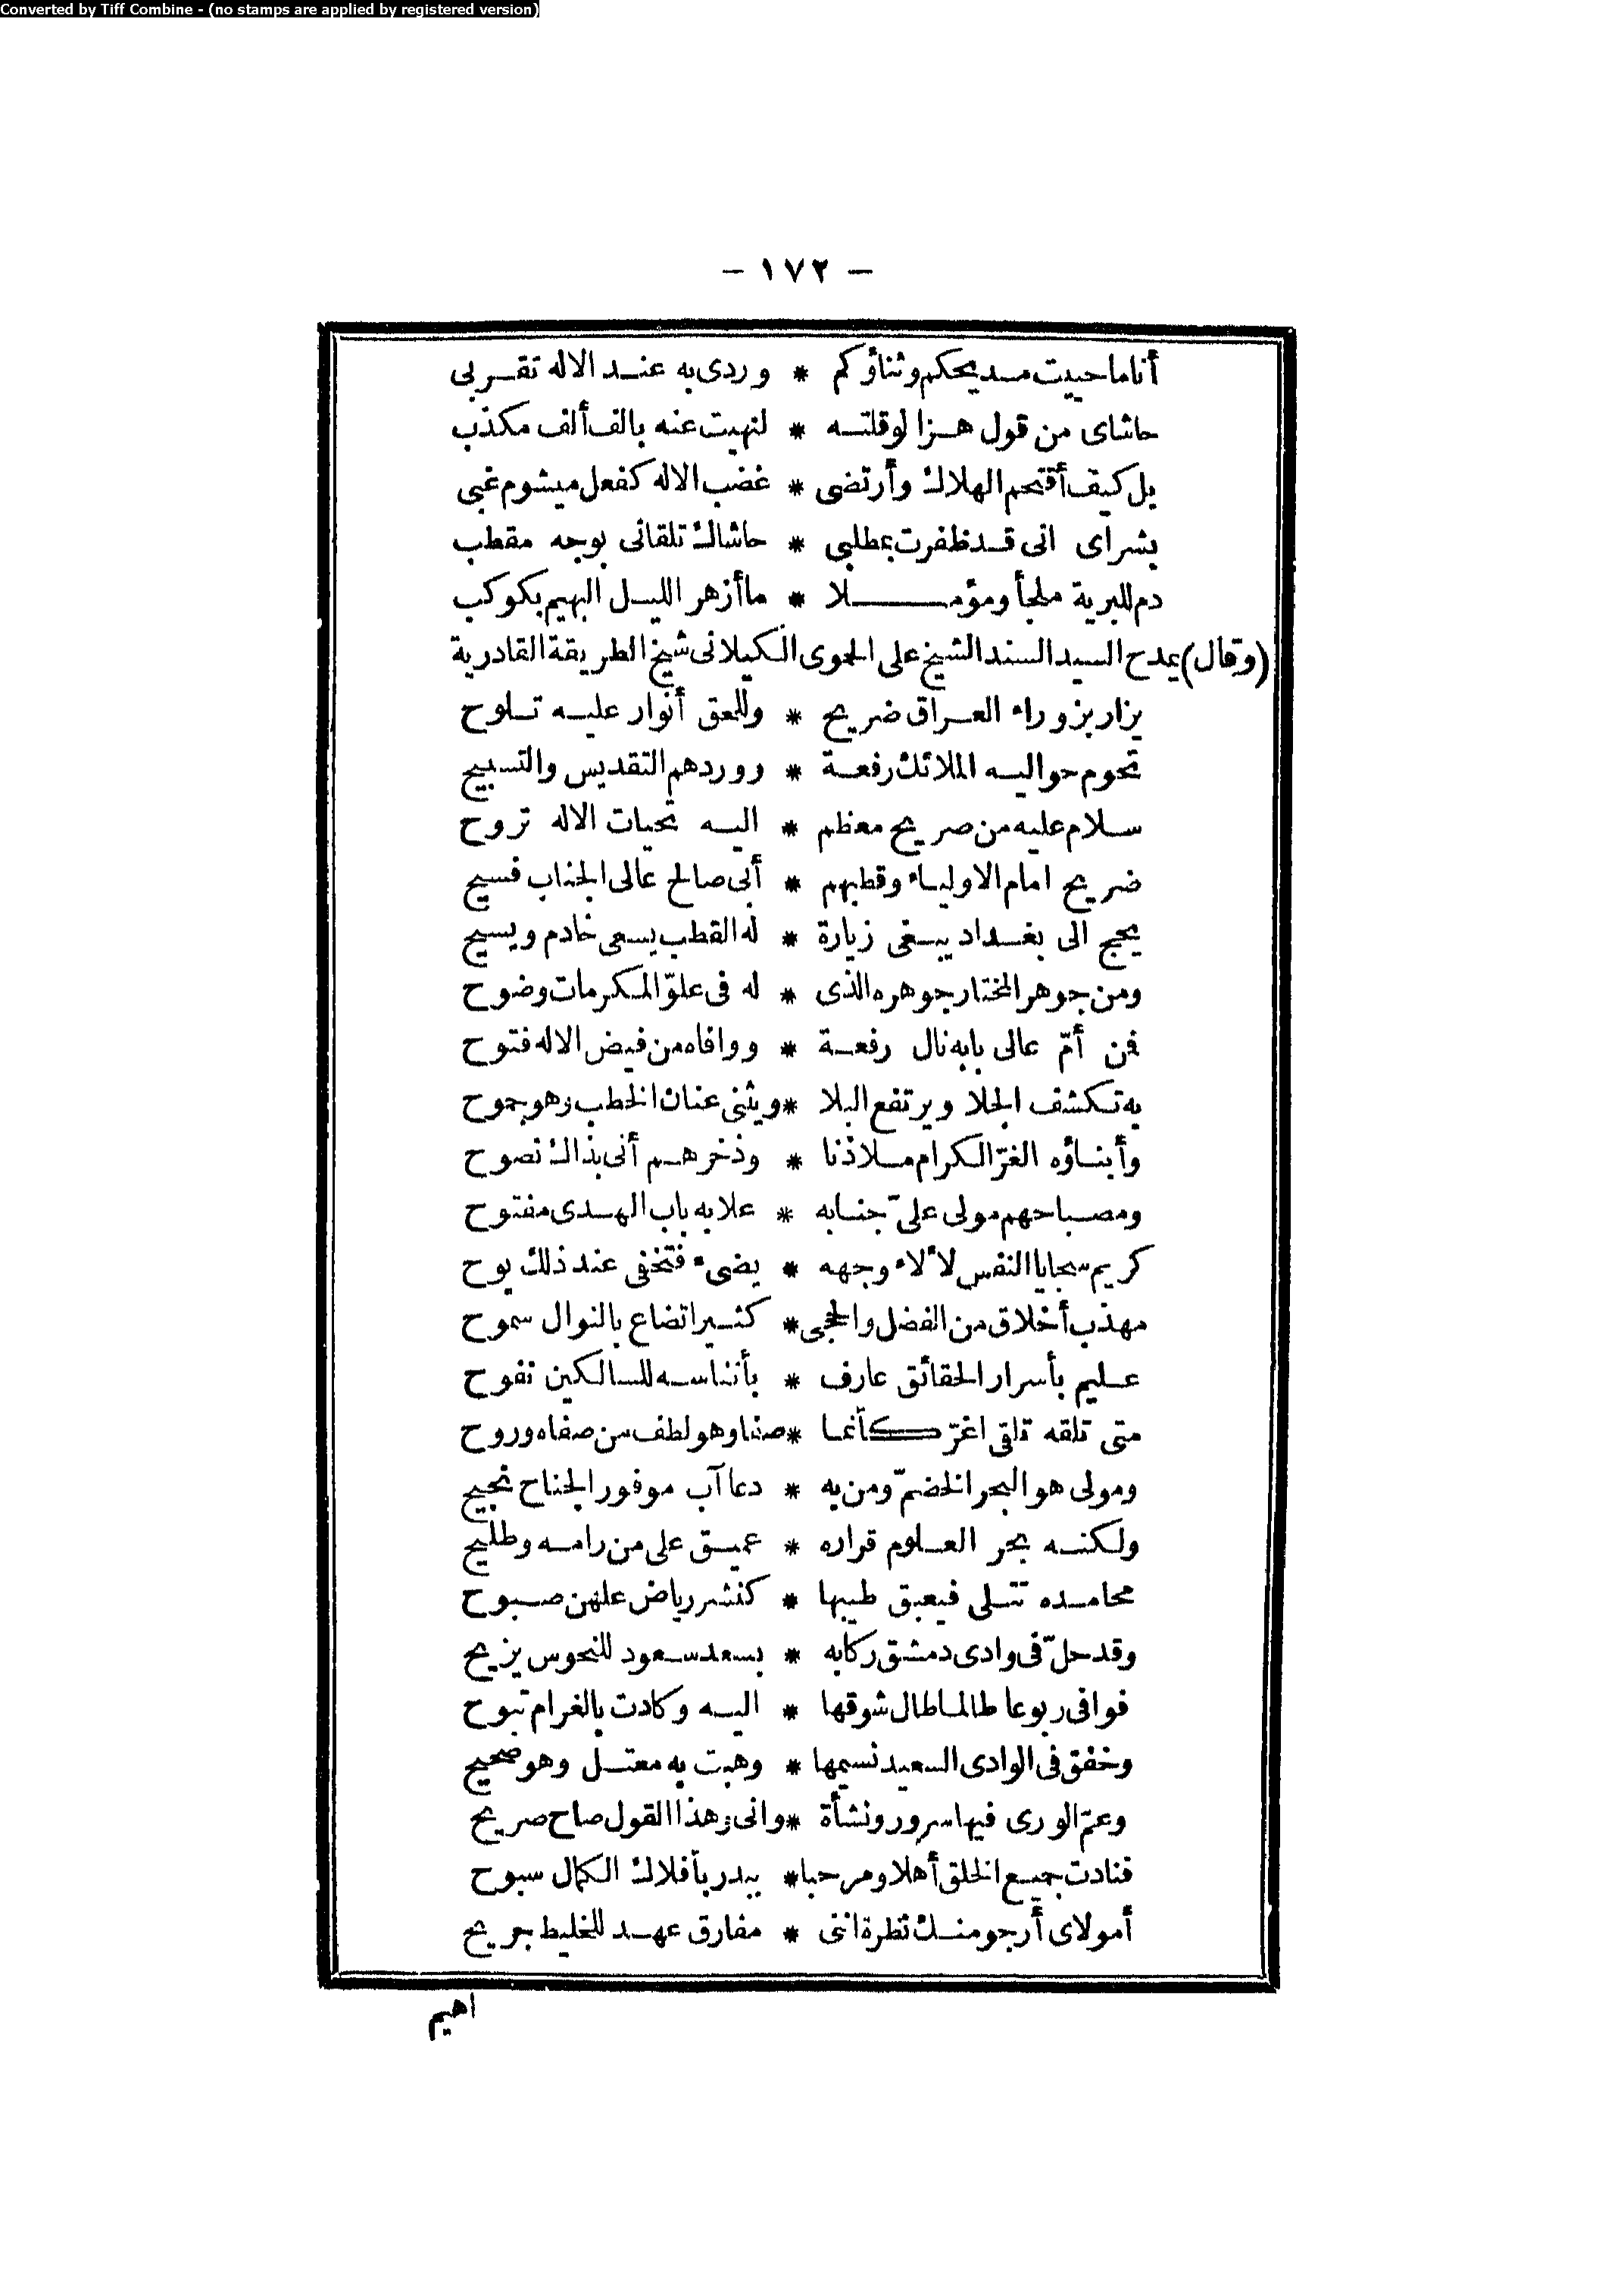 Converted by Tiff Combine - (no stamps are applied by registered version)
– ١٧٢ –
أنا ما حييت مديحكم وثناؤكم * وردى به عند الاله تقربى
حاشاى من قول هزا لو قلته * لنهيت عنه بالف ألف مكذب
بل كيف أقتحم الهلاك وأرتضى * غضب الاله كفعل ميشوم غبى
بشراى انى قد ظفرت بمطلبى * حاشاك تلقانى بوجه مقطب
دم للبرية ملجأ ومؤملا * ما أزهر الليل البهيم بكوكب
(وقال) يمدح السيد السند الشيخ على الحموى الكيلانى شيخ الطريقة القادرية
يزار بزوراء العراق ضريح * وللحق أنوار عليه تلوح
تحوم حواليه الملائك رفعة * ووردهم التقديس والتسبيح
سلام عليه من صريح معظم * اليه تحيات الاله تروح
ضريح امام الاولياء وقطبهم * أبى صالح عالى الجناب فسيح
يحج الى بغداد يبغى زيارة * له القطب يسعى خادم ويسيح
ومن جوهر المختار جوهره الذى * له فى علوّ المكرمات وضوح
فمن أمّ عالى بابه نال رفعة * ووافاه من فيض الاله فتوح
به تكشف الجلا ويرتفع البلا * ويثنى عنان الخطب وهو جموح
وأبناؤه الغرّ الكرام ملاذنا * وذخرهم أنى بذاك نصوح
ومصباحهم مولى علىّ جنابه * علا به باب الهدى مفتوح
كريم سجايا النفس لألاء وجهه * يضىء فتخفى عند ذلك يوح
مهذب أخلاق من الفضل والحجى * كثير اتضاع بالنوال سموح
عليم بأسرار الحقائق عارف * بأنفاسه للسالكين نفوح
متى تلقه تلقى اغرّ كأنما * صفا وهو لطف من صفاه وروح
ومولى هو البحر الخضمّ ومن به * دعا آب موفور الجناح نجيح
ولكنه بحر العلوم قراره * عميق على من رامه وطليح
محامده تتلى فيعبق طيبها * كنشر رياض علهن صبوح
وقد حلّ فى وادى دمشق ركابه * بسعد سعود للنحوس يزيح
فوافى ربوعا طالما طال شوقها * اليه وكادت بالغرام تبوح
وخفق فى الوادى السعيد نسيمها * وهبت به معتل وهو صحيح
وعمّ الورى فيها سرور ونشأة * وانى وهذا القول صاح صريح
فنادت جميع الخلق أهلا ومرحبا * ببدر بأفلاك الكمال سبوح
أمولاى أرجو منك نظرة اننى * مفارق عهد للخليط جريح
اهيم